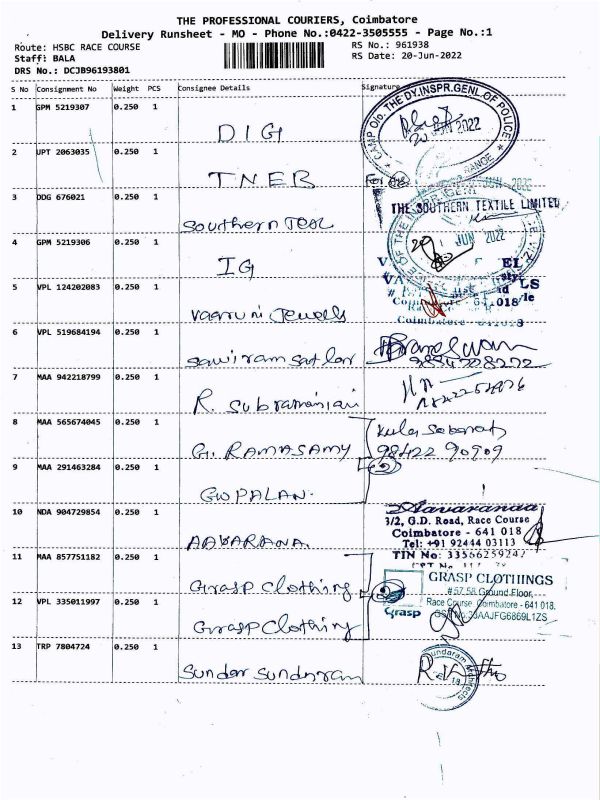 THE PROFESSIONAL COURIERS, Coimbatore
Delivery Runsheet - MO - Phone No.:0422-3505555 - Page No.:1
Route: HSBC RACE COURSE
RS No.: 961938
Staff: BALA
RS Date: 20-Jun-2022
DRS No.: DCJB96193801
S No Consignment No Weight PCS Consignee Details Signature
1 GPM 5219307 0.250 1 DIG
CAMP O/o. THE DY.INSPR.GENL.OF POLICE
RANGE
20 JUN 2022
2 UPT 2063035 0.250 1 TNEB
3 DDG 676021 0.250 1 Southern Tex
THE SOUTHERN TEXTILE LIMITED
4 GPM 5219306 0.250 1 IG
JUN 2022
5 VPL 124202083 0.250 1 Vaaruni Jewels
Coimbatore - 641018
6 VPL 519684194 0.250 1 Sawiram
7 MAA 942218799 0.250 1 R. Subramanian
8 MAA 565674045 0.250 1 G. RAMASAMY
98422 90909
9 MAA 291463284 0.250 1 GOPALAN.
10 NDA 904729854 0.250 1 AAVARANA
Aavaranaa
3/2, G.D. Road, Race Course
Coimbatore - 641 018
Tel: +91 92444 03113
TIN No:
11 MAA 857751182 0.250 1 Grasp Clothing
GRASP CLOTHINGS
# 57,58 Ground Floor,
Race Course, Coimbatore - 641 018.
Grasp
12 VPL 335011997 0.250 1 Grasp Clothing
13 TRP 7804724 0.250 1 Sundar Sundaram